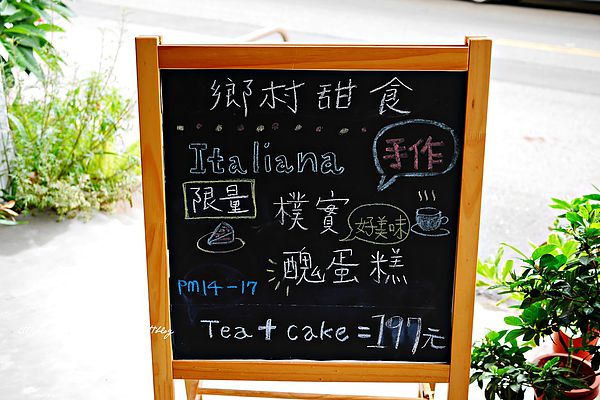 鄉村甜食
Italiana
手作
限量
樸實
好美味
醜蛋糕
PM14-17
Tea+cake=197元